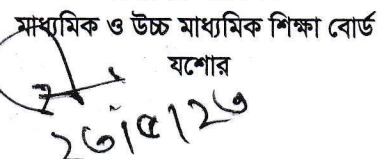 মাধ্যমিক ও উচ্চ মাধ্যমিক শিক্ষা বোর্ড
যশোর